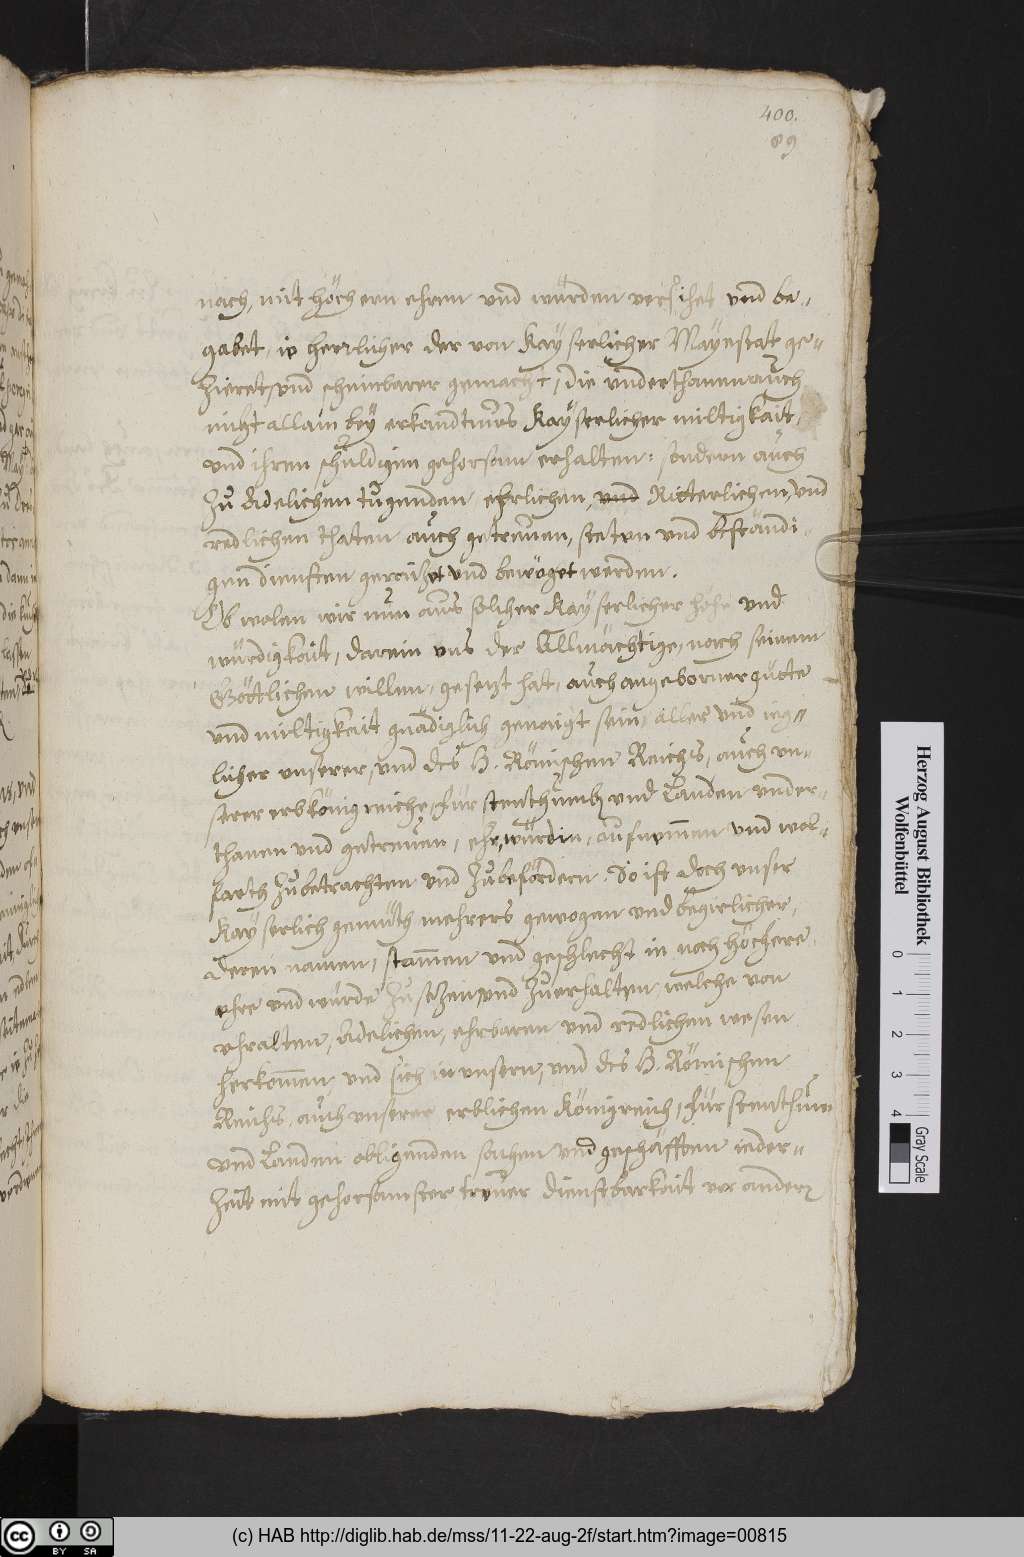 400.
89
nach, mit höchern ehren und würden versihet und be-
gabet, ie herrlicher der von Kayserlicher Mayestat ge-
zieret, und scheinbarer gemacht, die underthanen auch
nicht allain bey erkandtnus Kayserlicher miltigkait,
und ihren schuldigen gehorsam erhalten: sondern auch
zu Adelichen tugenden, ehrlichen, und Ritterlichen, und
redlichen thaten auch getreuen, steten und bestandi-
gen diensten geraitzet und beweget werden.
Ob wolen wir nun aus solcher Kayserlicher hohe und
würdigkait, darein uns der Allmächtige, nach seinem
Göttlichen willen, gesetzt hat, auch angeborner gütte
und miltigkait gnädiglich genaigt sein, aller und ieg-
licher unserer, und des H. Römischen Reichs, auch un-
serer erbkönigreiche, Fürstenthumb und Landen under-
thanen und getreuen, ehr, würden, aufnemen und wol-
farth zubetrachten und zubefördern. So ist doch unser
Kayserlich gemüth mehrers gewogen und begirlicher,
deren namen, stammen und geschlecht in noch höchere
ehre und würde zu setzen, und zuerhalten, welche von
uhralten, Adelichen, ehrbaren und redlichen wesen
herkommen, und sich in unsern, und des H. Römischen
Reichs, auch unserer erblichen Königreich, Fürstenthumb
und Landen obligenden sachen und geschäfften ieder-
zeit mit gehorsamster treuer dienstbarkait vor andern
Herzog August Bibliothek
Wolfenbüttel
0 1 2 3 4
Gray Scale
CC BY SA
(c) HAB http://diglib.hab.de/mss/11-22-aug-2f/start.htm?image=00815